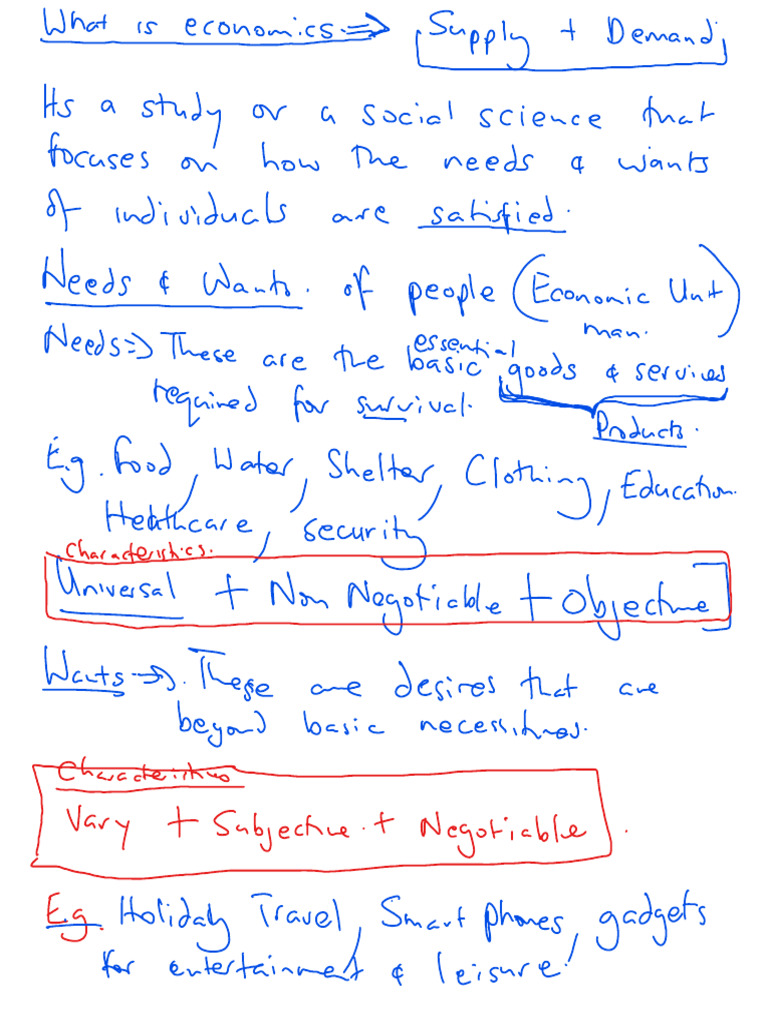 What is economics. => Supply + Demand
Its a study or a social science that
focuses on how the needs & wants
of individuals are satisfied.
Needs & Wants. of people (Economic Unit)
man.
Needs => These are the basic essential goods & services
required for survival. Products.
E.g. food, Water, Shelter, Clothing, Education.
Healthcare, security
Characteristics.
Universal + Non Negotiable + Objective
Wants =>. These are desires that are
beyond basic necessities.
Characteristics
Vary + Subjective. + Negotiable.
E.g. Holiday Travel, Smart phones, gadgets
for entertainment & leisure.